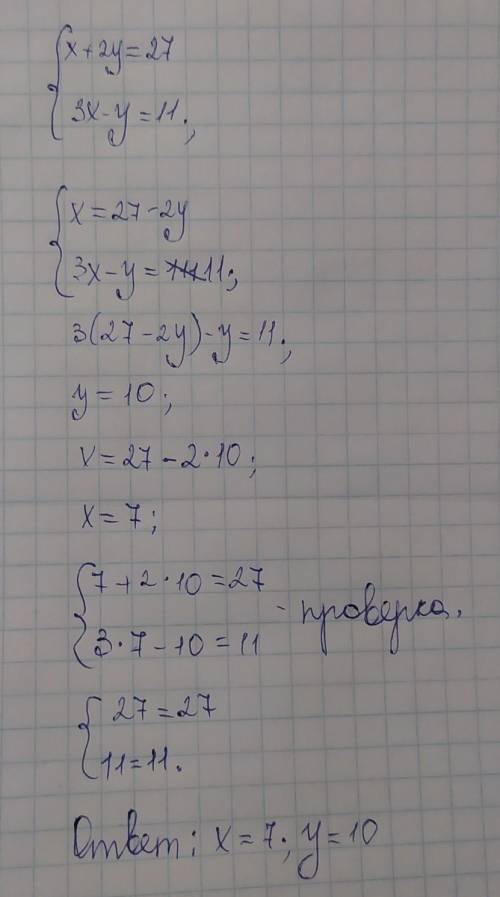 x+2y=27
3x-y=11;
x=27-2y
3x-y=11;
3(27-2y)-y=11;
y=10;
x=27-2·10;
x=7;
7+2·10=27
3·7-10=11 - проверка.
27=27
11=11.
Ответ: x=7; y=10